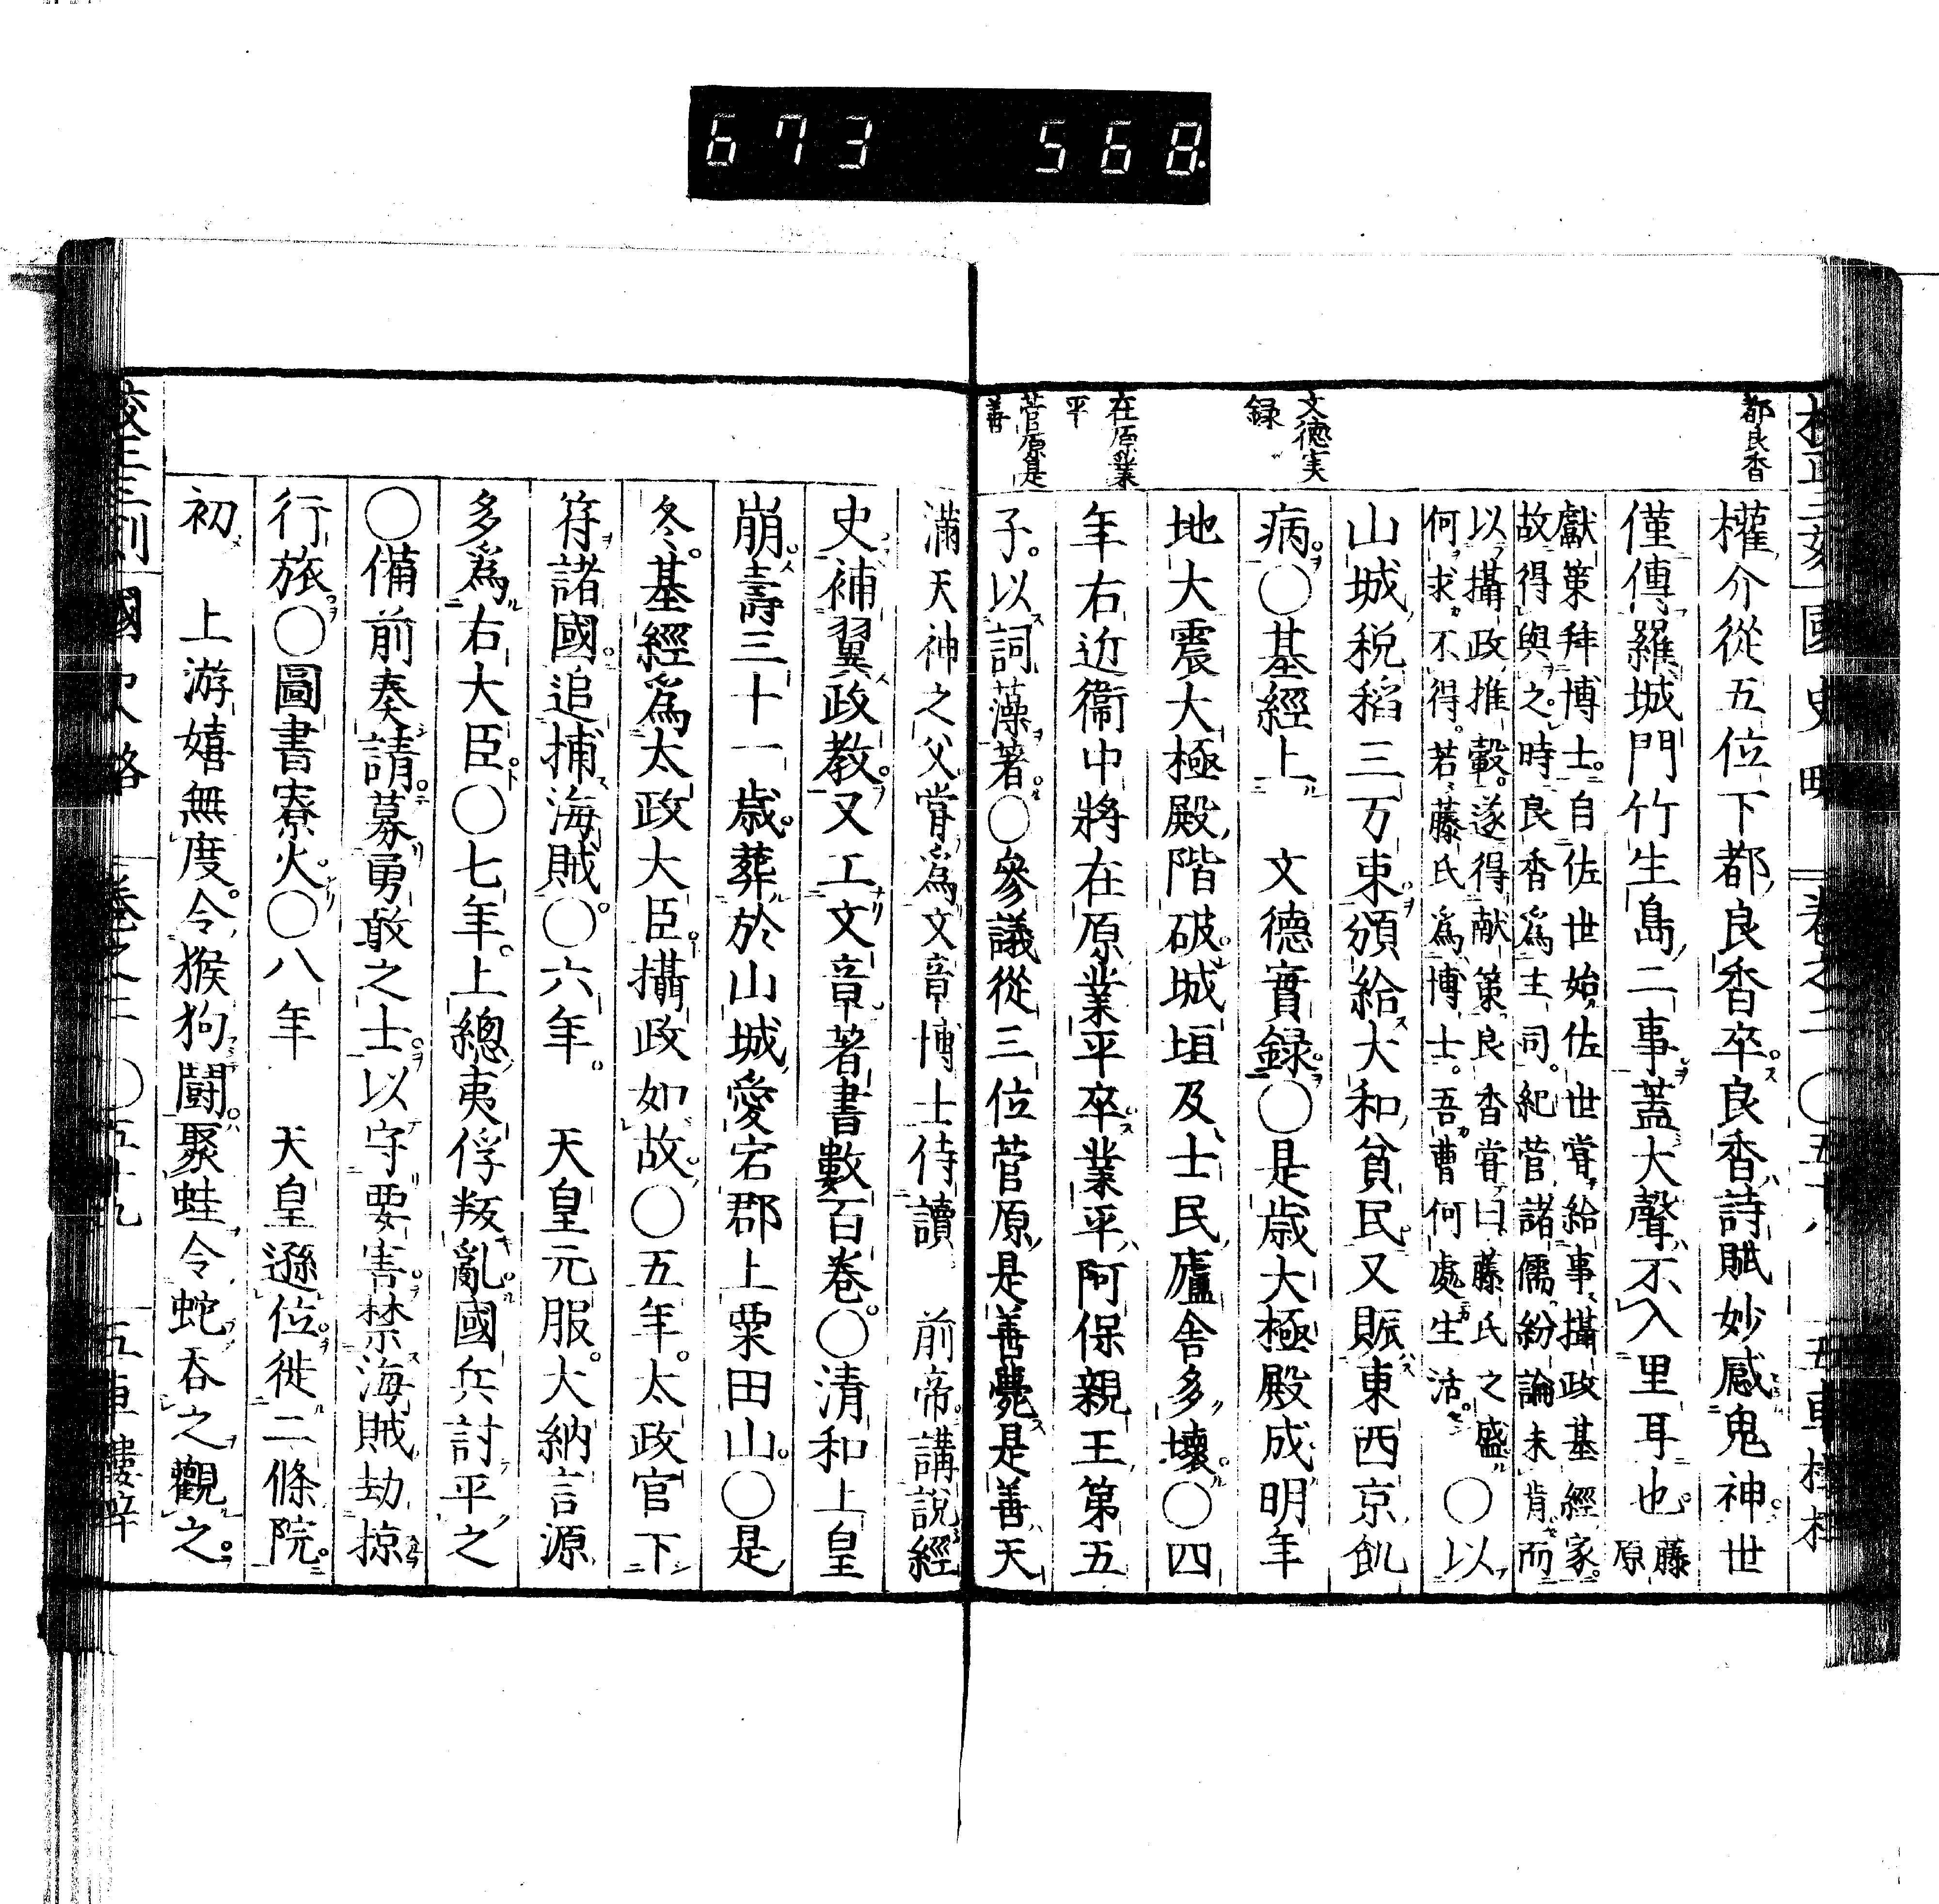 673 568
都良香
權介從五位下都良香卒良香詩賦妙感鬼神世
僅傳羅城門竹生島二事蓋大聲不入里耳也藤原
獻策拜博士自佐世始佐世甞給事攝政基經家
故得與之時良香爲主司紀菅諸儒紛論未肯而
以攝政推轂遂得献策良香甞曰藤氏之盛
何求不得若藤氏爲博士吾曹何處生活○以
山城税稻三万束頒給大和貧民又賑東西京飢
文德実録
病○基經上 文德實録○是歳大極殿成明年
地大震大極殿階破城垣及士民廬舎多壊○四
在原業平
年右近衞中將在原業平卒業平阿保親王第五
菅原是善
子以詞藻著○參議從三位菅原是善薨是善天
滿天神之父甞爲文章博士侍讀 前帝講説經
史補翼政教又工文章著書數百卷○清和上皇
崩壽三十一歳葬於山城愛宕郡上粟田山○是
冬基經爲太政大臣攝政如故○五年太政官下
符諸國追捕海賊○六年 天皇元服大納言源
多爲右大臣○七年上總夷俘叛亂國兵討平之
○備前奏請募勇敢之士以守要害禁海賊劫掠
行旅○圖書寮火○八年 天皇遜位徙二條院
初 上游嬉無度令猴狗鬪聚蛙令蛇呑之觀之